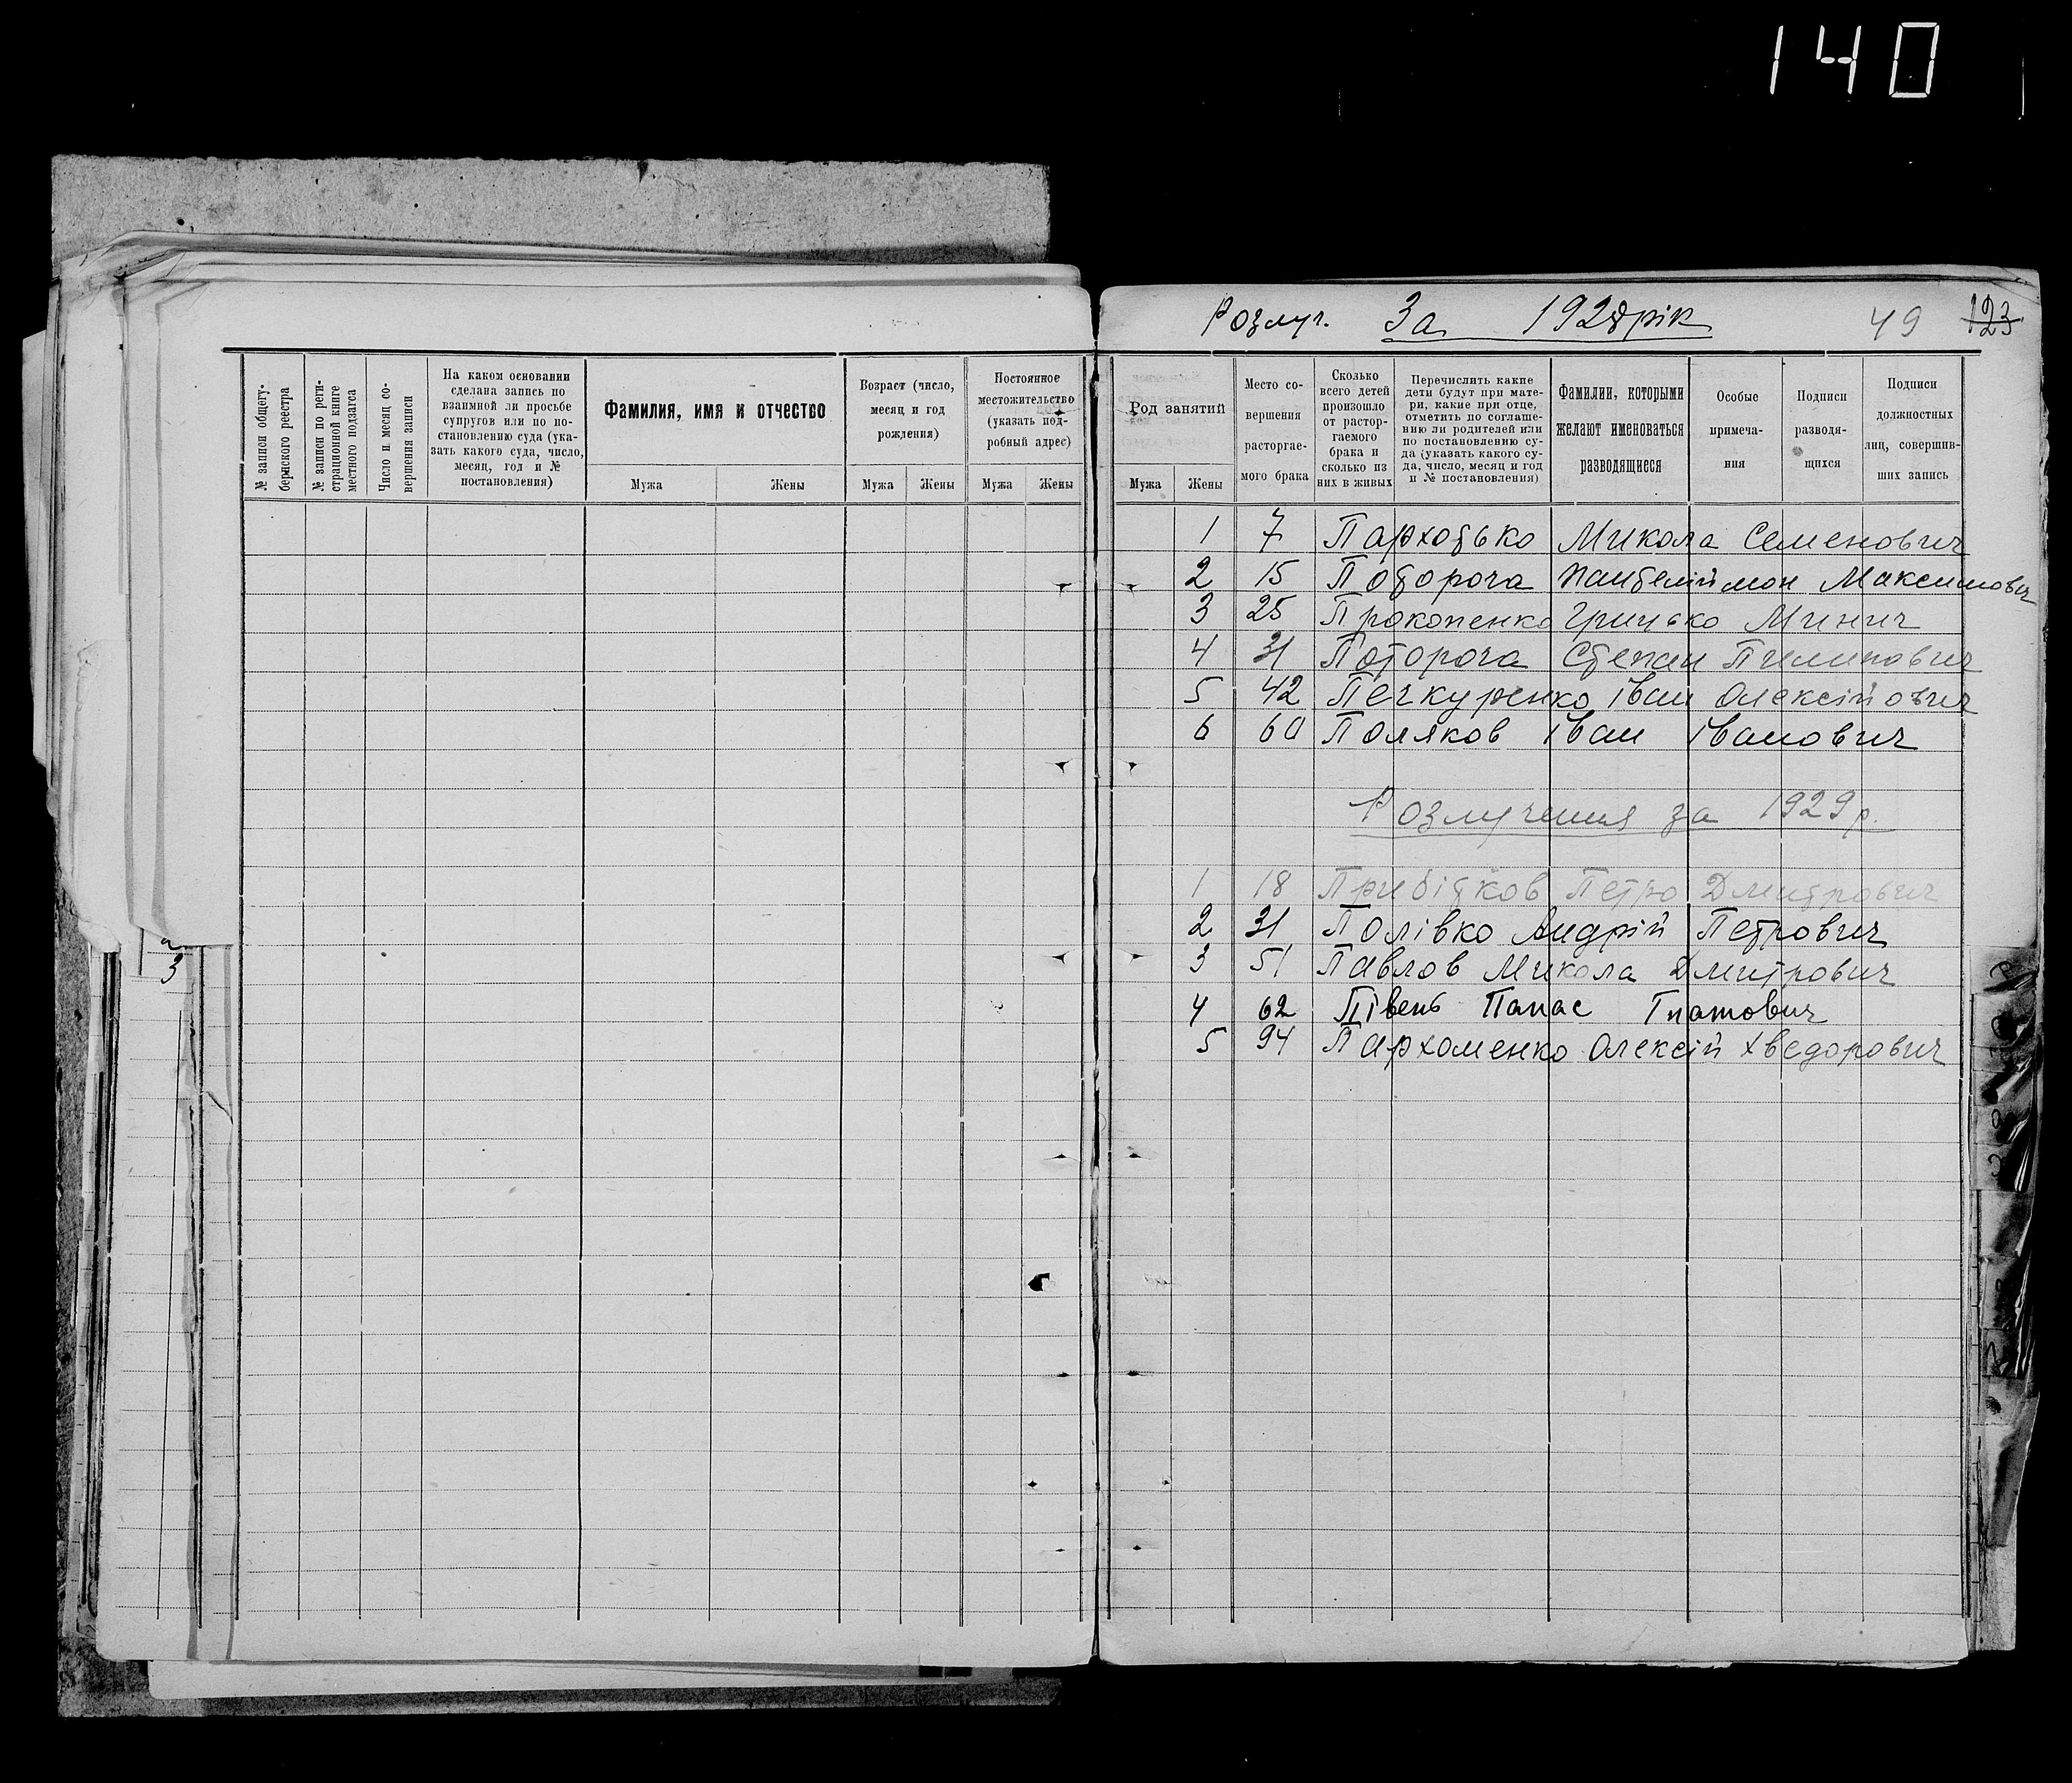 140
Розлуч. За 1928 рік 49 123
№ записи общегу-
бернского реестра
№ записи по реги-
страционной книге
местного подзагса
Число и месяц со-
вершения записи
На каком основании
сделана запись по
взаимной ли просьбе
супругов или по по-
становлению суда (ука-
зать какого суда, число,
месяц, год и №
постановления)
Фамилия, имя и отчество
Мужа Жены
Возраст (число,
месяц и год
рождения)
Мужа Жены
Постоянное
местожительство
(указать под-
робный адрес)
Мужа Жены
Род занятий
Мужа Жены
Место со-
вершения
расторгае-
мого брака
Сколько
всего детей
произошло
от растор-
гаемого
брака и
сколько из
них в живых
Перечислить какие
дети будут при мате-
ри, какие при отце,
отметить по соглаше-
нию ли родителей или
по постановлению су-
да (указать какого су-
да, число, месяц и год
и № постановления)
Фамилии, которыми
желают именоваться
разводящиеся
Особые
примеча-
ния
Подписи
разводя-
щихся
Подписи
должностных
лиц, совершив-
ших запись
1 7 Пархотько Микола Семенович
2 15 Потороча Пантеліймон Максимович
3 25 Прокопенко Грицько Минич
4 31 Потороча Степан Пилипович
5 42 Печкуренко Іван Олексійович
6 60 Поляков Іван Іванович
Розлучення за 1929 р.
1 18 Прибітков Петро Дмитрович
2 31 Полівко Андрій Петрович
3 51 Павлов Микола Дмитрович
4 62 Півень Панас Гнатович
5 94 Пархоменко Олексій Хведорович
3